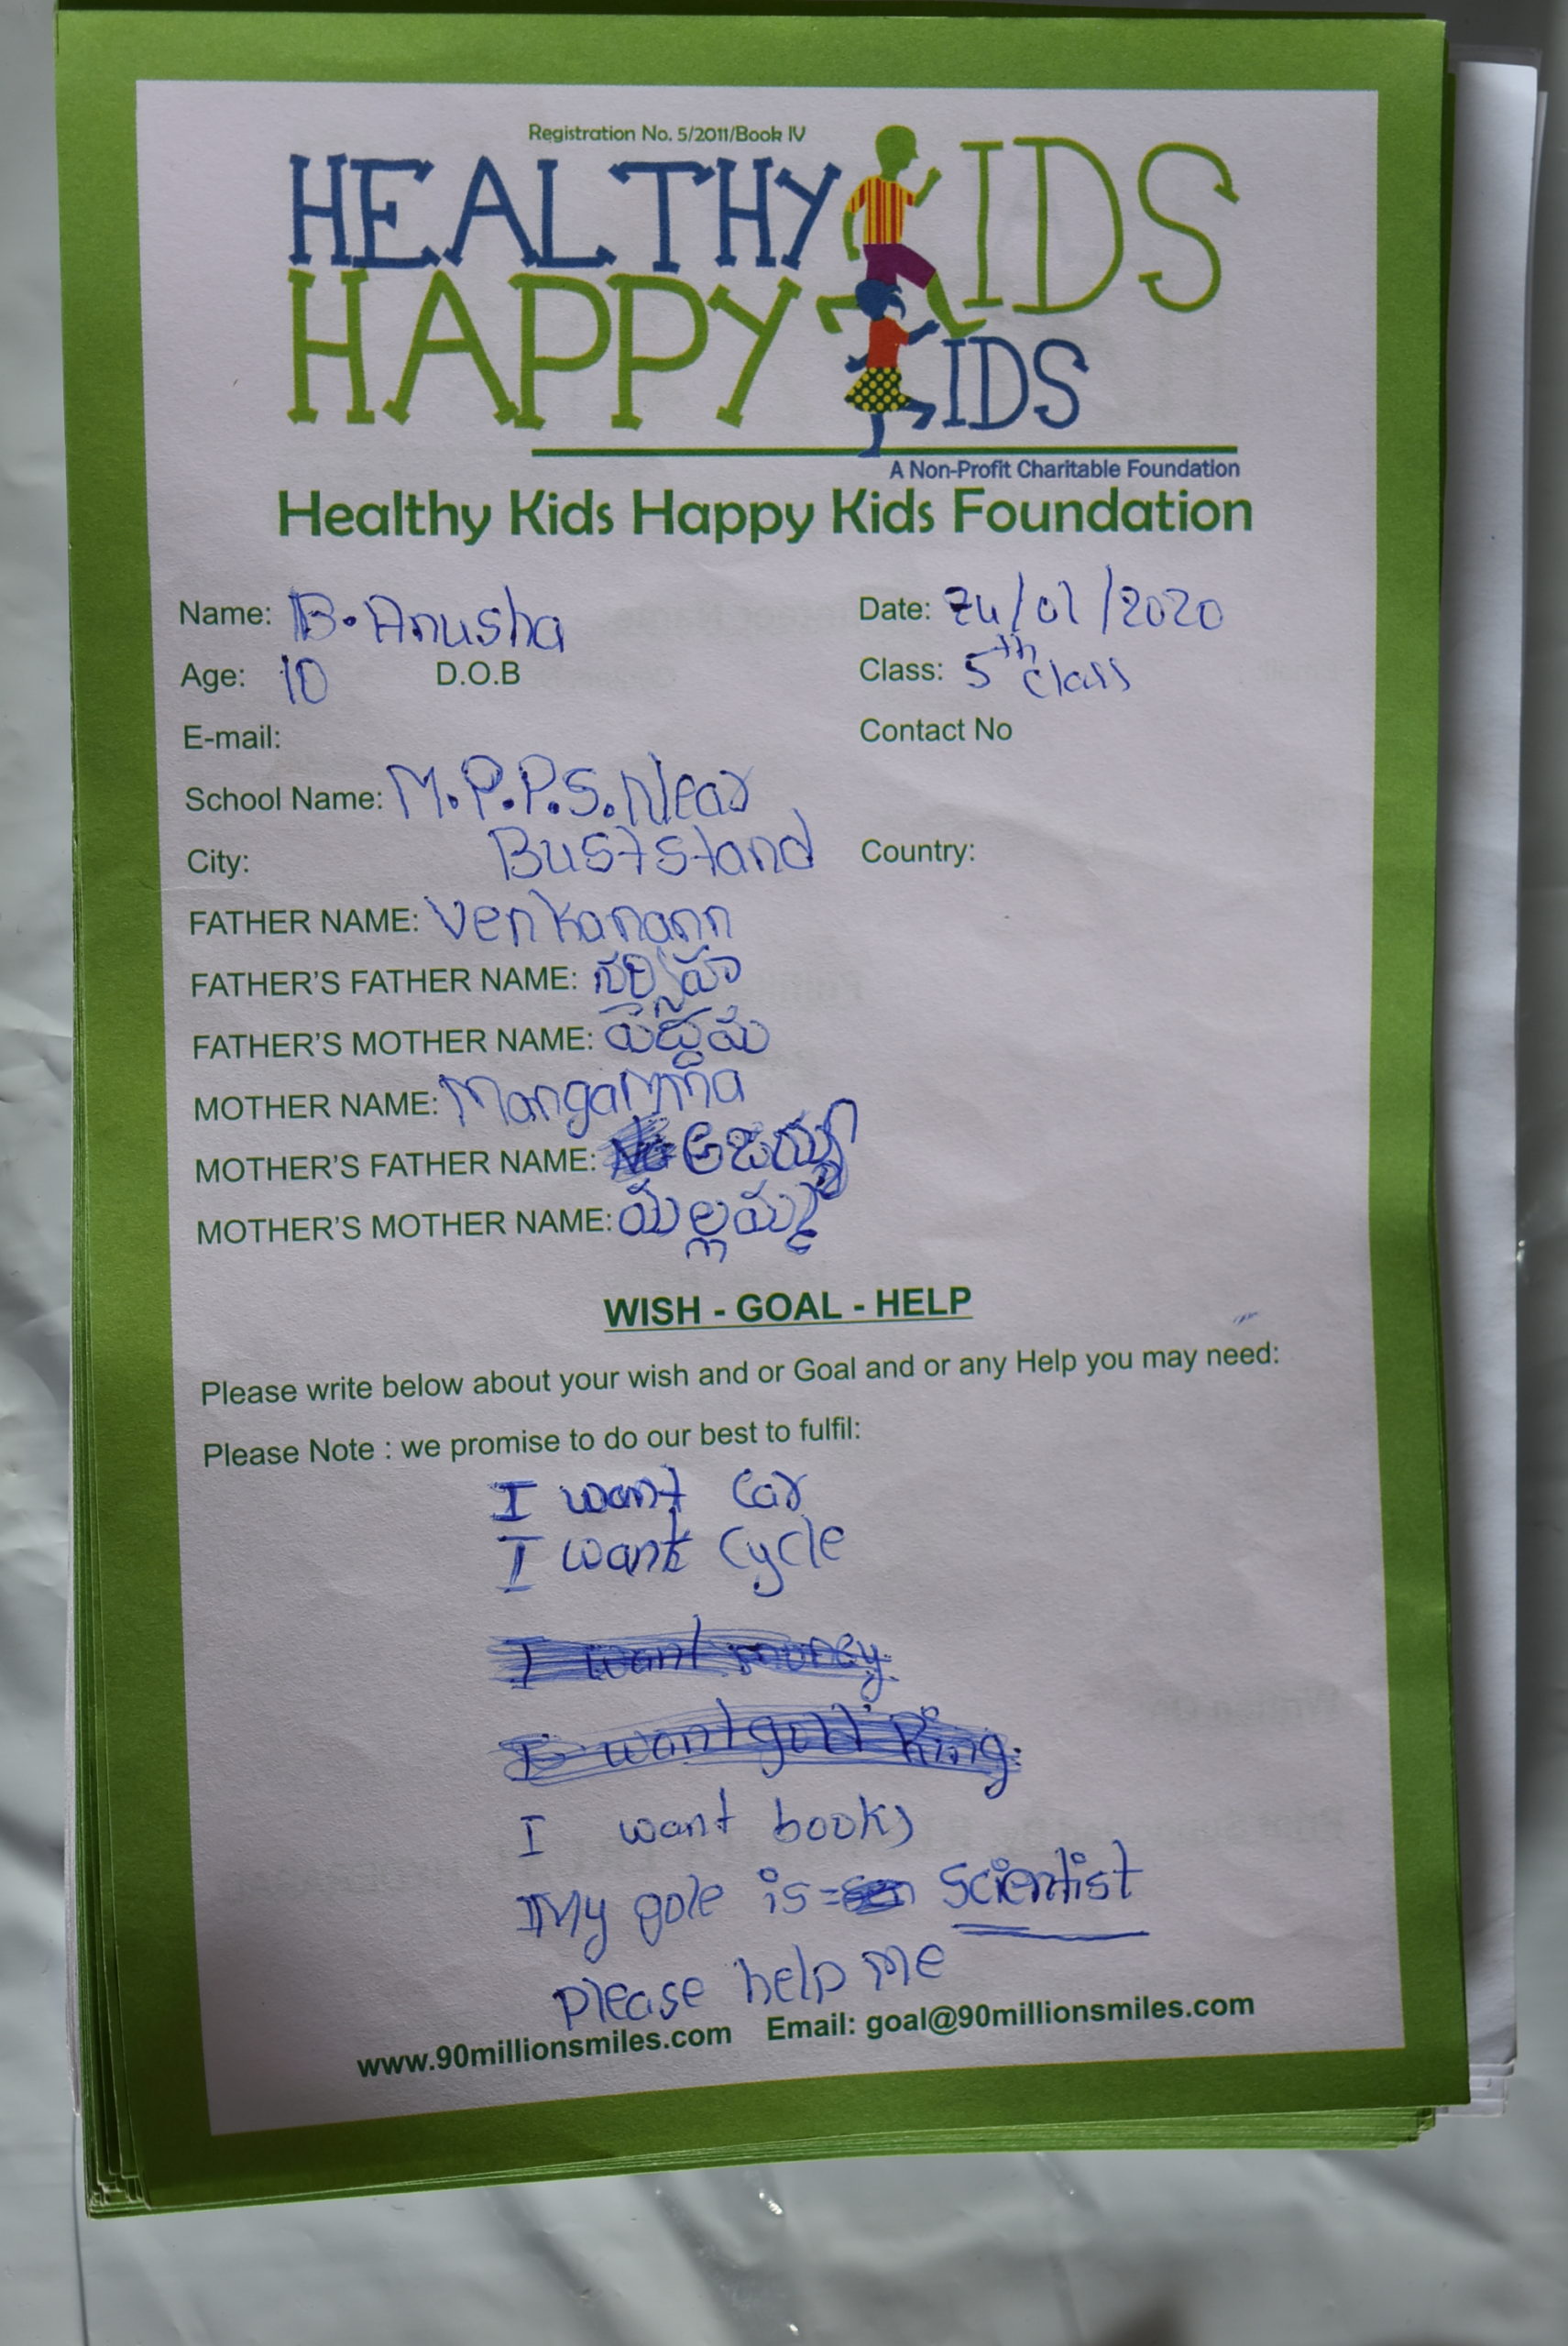 Registration No. 5/2011/Book IV
HEALTHY KIDS
HAPPY KIDS
A Non-Profit Charitable Foundation
Healthy Kids Happy Kids Foundation
Name: B. Anusha Date: 24/01/2020
Age: 10 D.O.B Class: 5th class
E-mail: Contact No
School Name: M.P.P.S. Near
City: Buststand Country:
FATHER NAME: Venkanann
FATHER'S FATHER NAME:
FATHER'S MOTHER NAME: పెద్దమ
MOTHER NAME: Mangamma
MOTHER'S FATHER NAME:
MOTHER'S MOTHER NAME: మల్లమ్మ
WISH - GOAL - HELP
Please write below about your wish and or Goal and or any Help you may need:
Please Note : we promise to do our best to fulfil:
I want Car
I want Cycle
I want money.
I want gold Ring.
I want books
My gole is = Scientist
please help me
www.90millionsmiles.com Email: goal@90millionsmiles.com